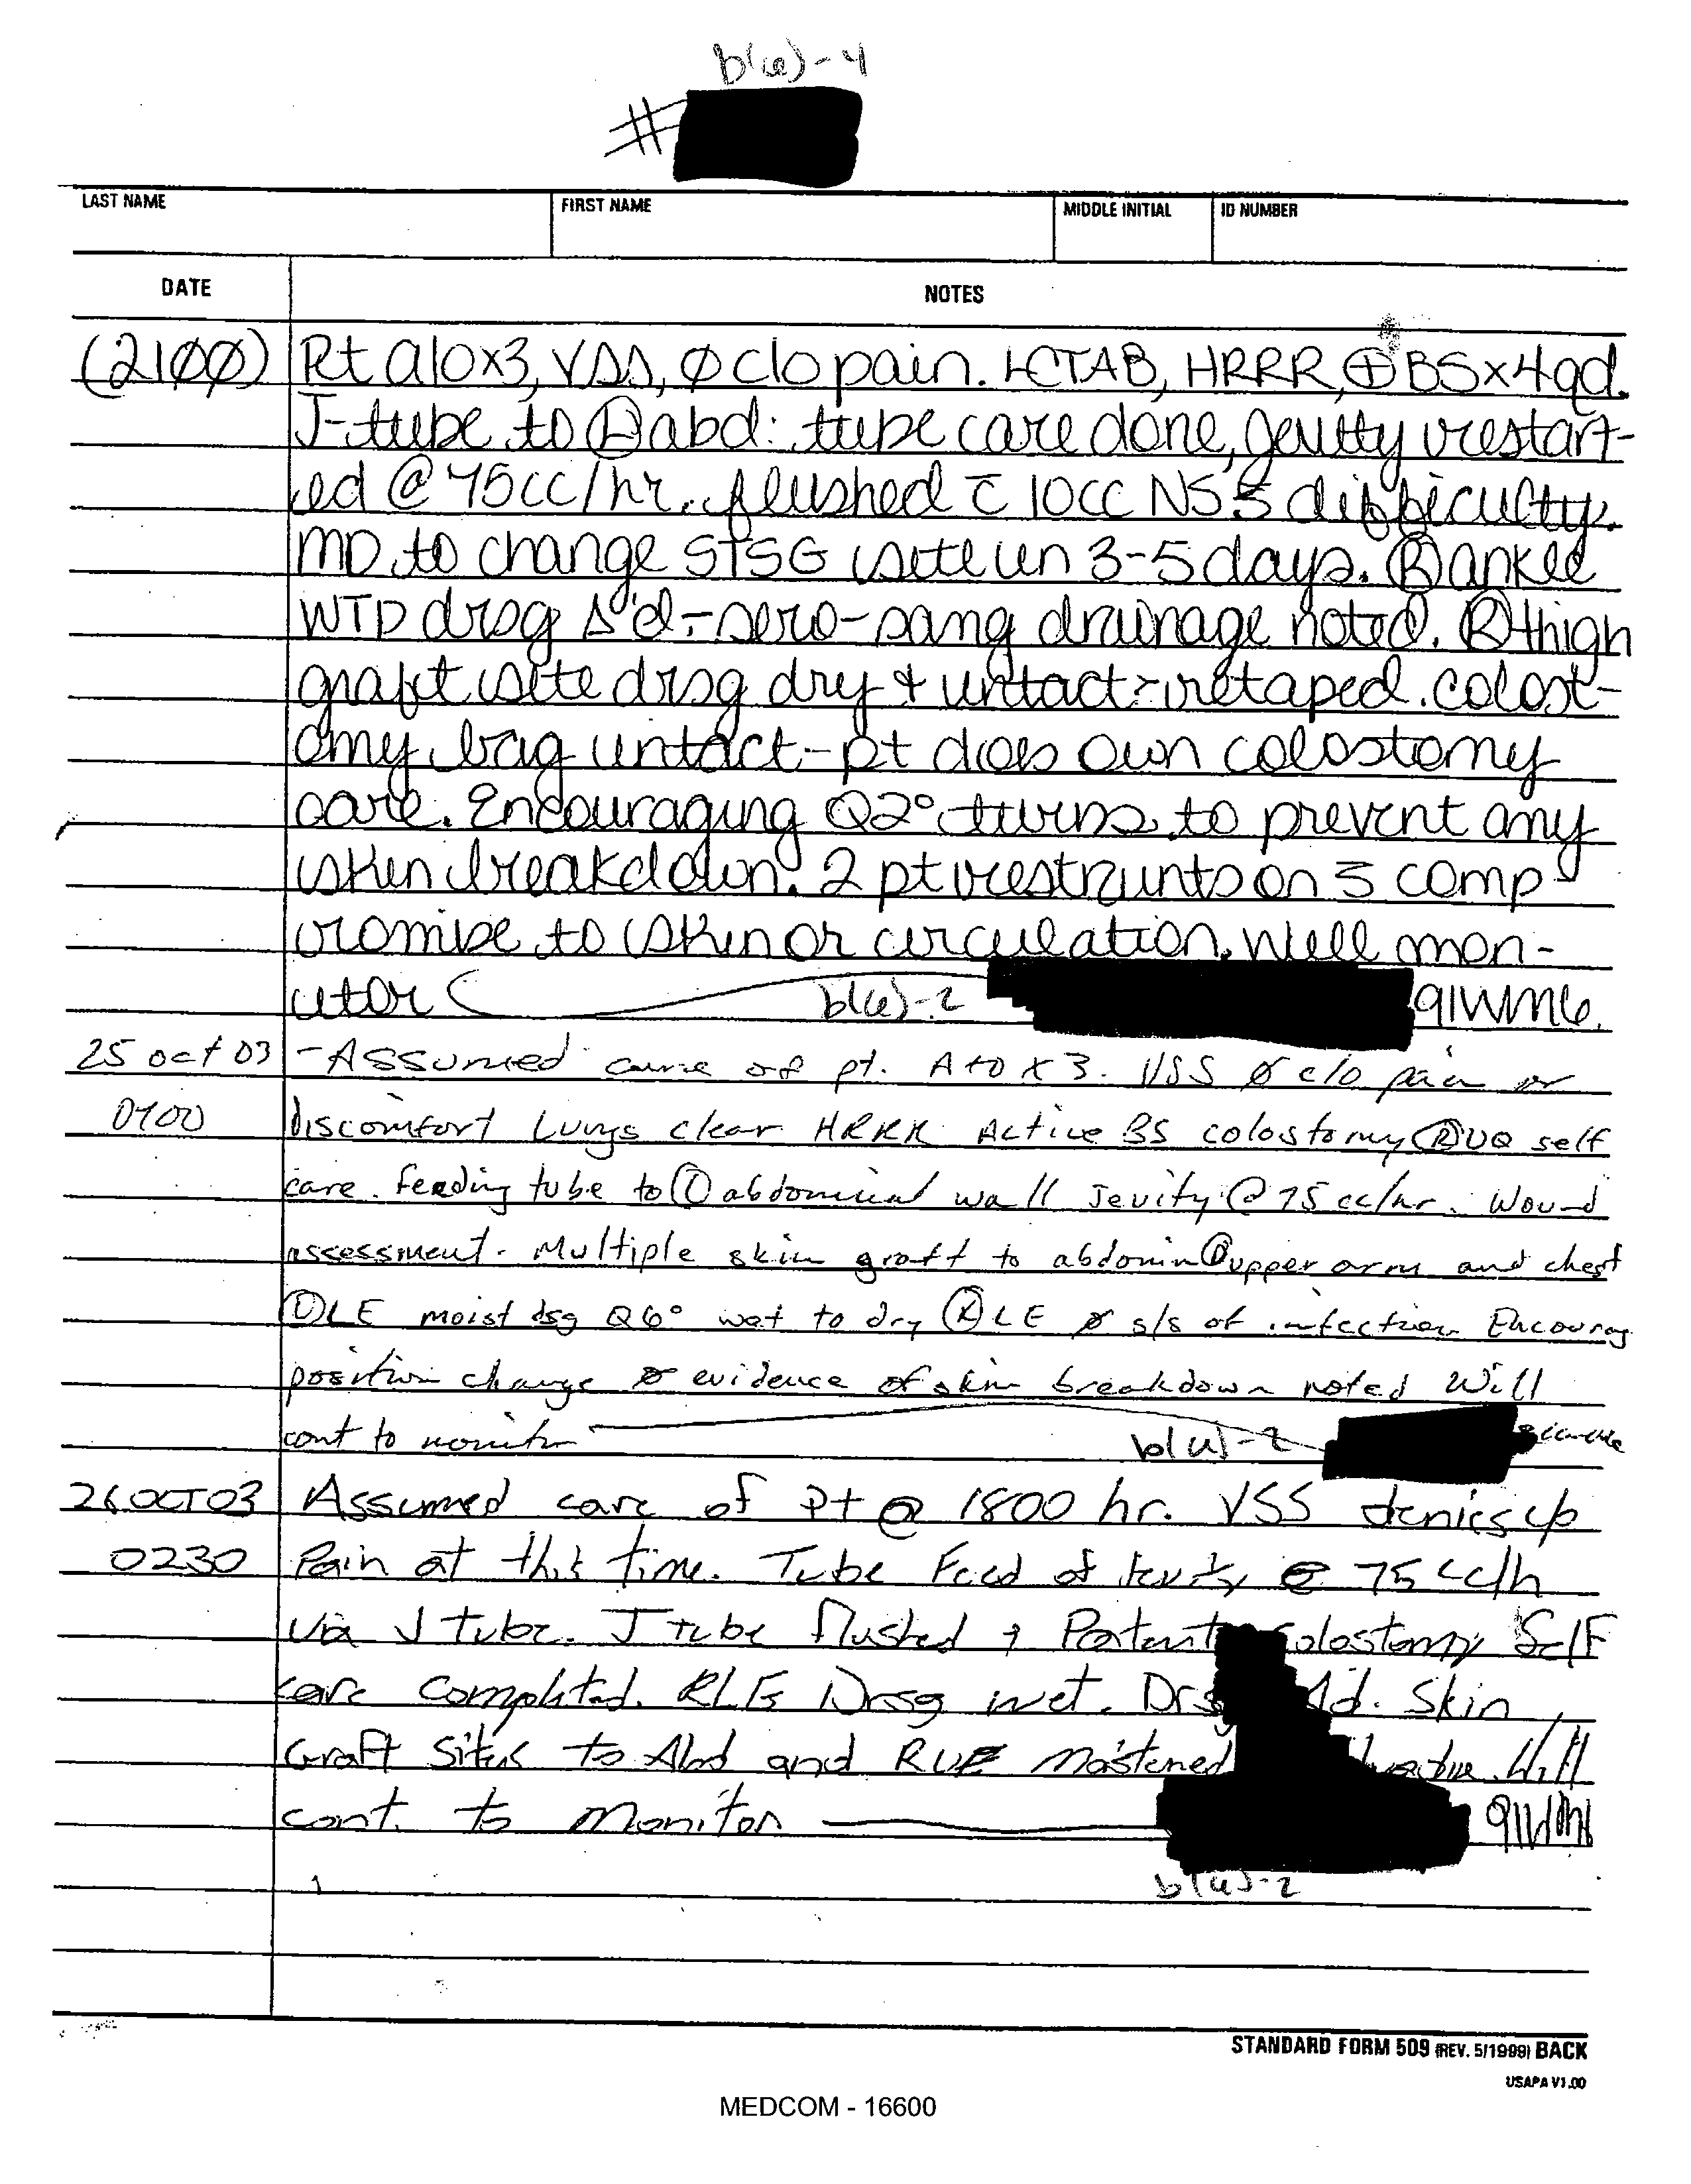 b(6)-4
#
LAST NAME FIRST NAME MIDDLE INITIAL ID NUMBER
DATE NOTES
(2100) Pt a/ox3, VSS, Ø c/o pain. LCTAB, HRRR, ⊕ BS x 4 qd.
J-tube to Ⓛ abd: tube care done, jevity restart-
ed @ 75cc/hr. flushed c̄ 10cc NS s̄ difficulty.
MD to change STSG site in 3-5 days. Ⓡ ankle
WTD drsg Δ'd - sero-sang drainage noted. Ⓡ thigh
graft site drsg dry & intact - retaped. colost-
omy bag intact - pt does own colostomy
care. Encouraging Q2° turns to prevent any
skin breakdown. 2 pt restraints on s̄ comp
romise to skin or circulation. Will mon-
itor b(6)-2 91WM6.
25 oct 03 - Assumed care of pt. A+O x 3. VSS Ø c/o pain or
0700 discomfort Lungs clear HRRR Active BS colostomy Ⓡ UQ self
care. feeding tube to Ⓛ abdominal wall Jevity @ 75 cc/hr. Wound
assessment. Multiple skin graft to abdomin Ⓡ upper arm and chest
Ⓛ LE moist dsg Q6° wet to dry Ⓡ LE Ø s/s of infection Encourag
position change Ø evidence of skin breakdown noted Will
cont to monitor b(6)-2
26 OCT 03 Assumed care of Pt @ 1800 hr. VSS denies c/o
0230 Pain at this time. Tube Feed of Jevity @ 75 cc/h
via J tube. J tube flushed + Patent colostomy Self
care completed. RLE's Drssg wet. Skin
Graft Sites to Abd and RUE Mostened Will
cont. to Monitor 91WM6
b(6)-2
STANDARD FORM 509 (REV. 5/1999) BACK
USAPA V1.00
MEDCOM - 16600